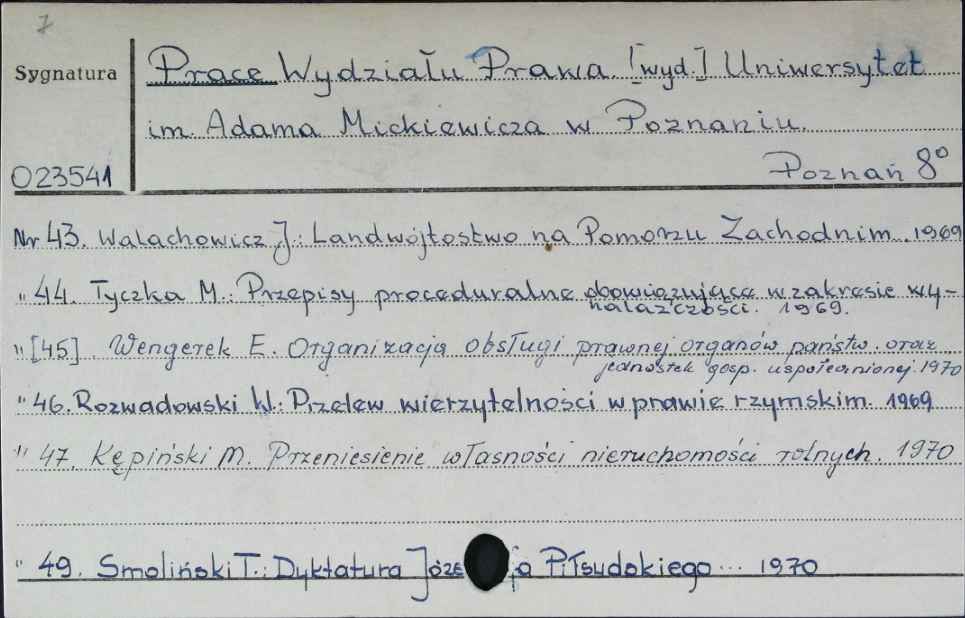 7
Sygnatura
Prace Wydziału Prawa. [wyd.] Uniwersytet
im. Adama Mickiewicza w Poznaniu.
Poznań 8°
023541
Nr 43. Walachowicz J.: Landwójtostwo na Pomorzu Zachodnim. 1969
" 44. Tyczka M.: Przepisy proceduralne obowiązujące w zakresie wy-
nalazczości. 1969.
" [45]. Wengerek E. Organizacja obsługi prawnej organów państw. oraz
jednostek gosp. uspołecznionej. 1970
" 46. Rozwadowski W.: Przelew wierzytelności w prawie rzymskim. 1969
" 47. Kępiński M. Przeniesienie własności nieruchomości rolnych. 1970
" 49. Smoliński T.: Dyktatura Józe ja Piłsudskiego ... 1970